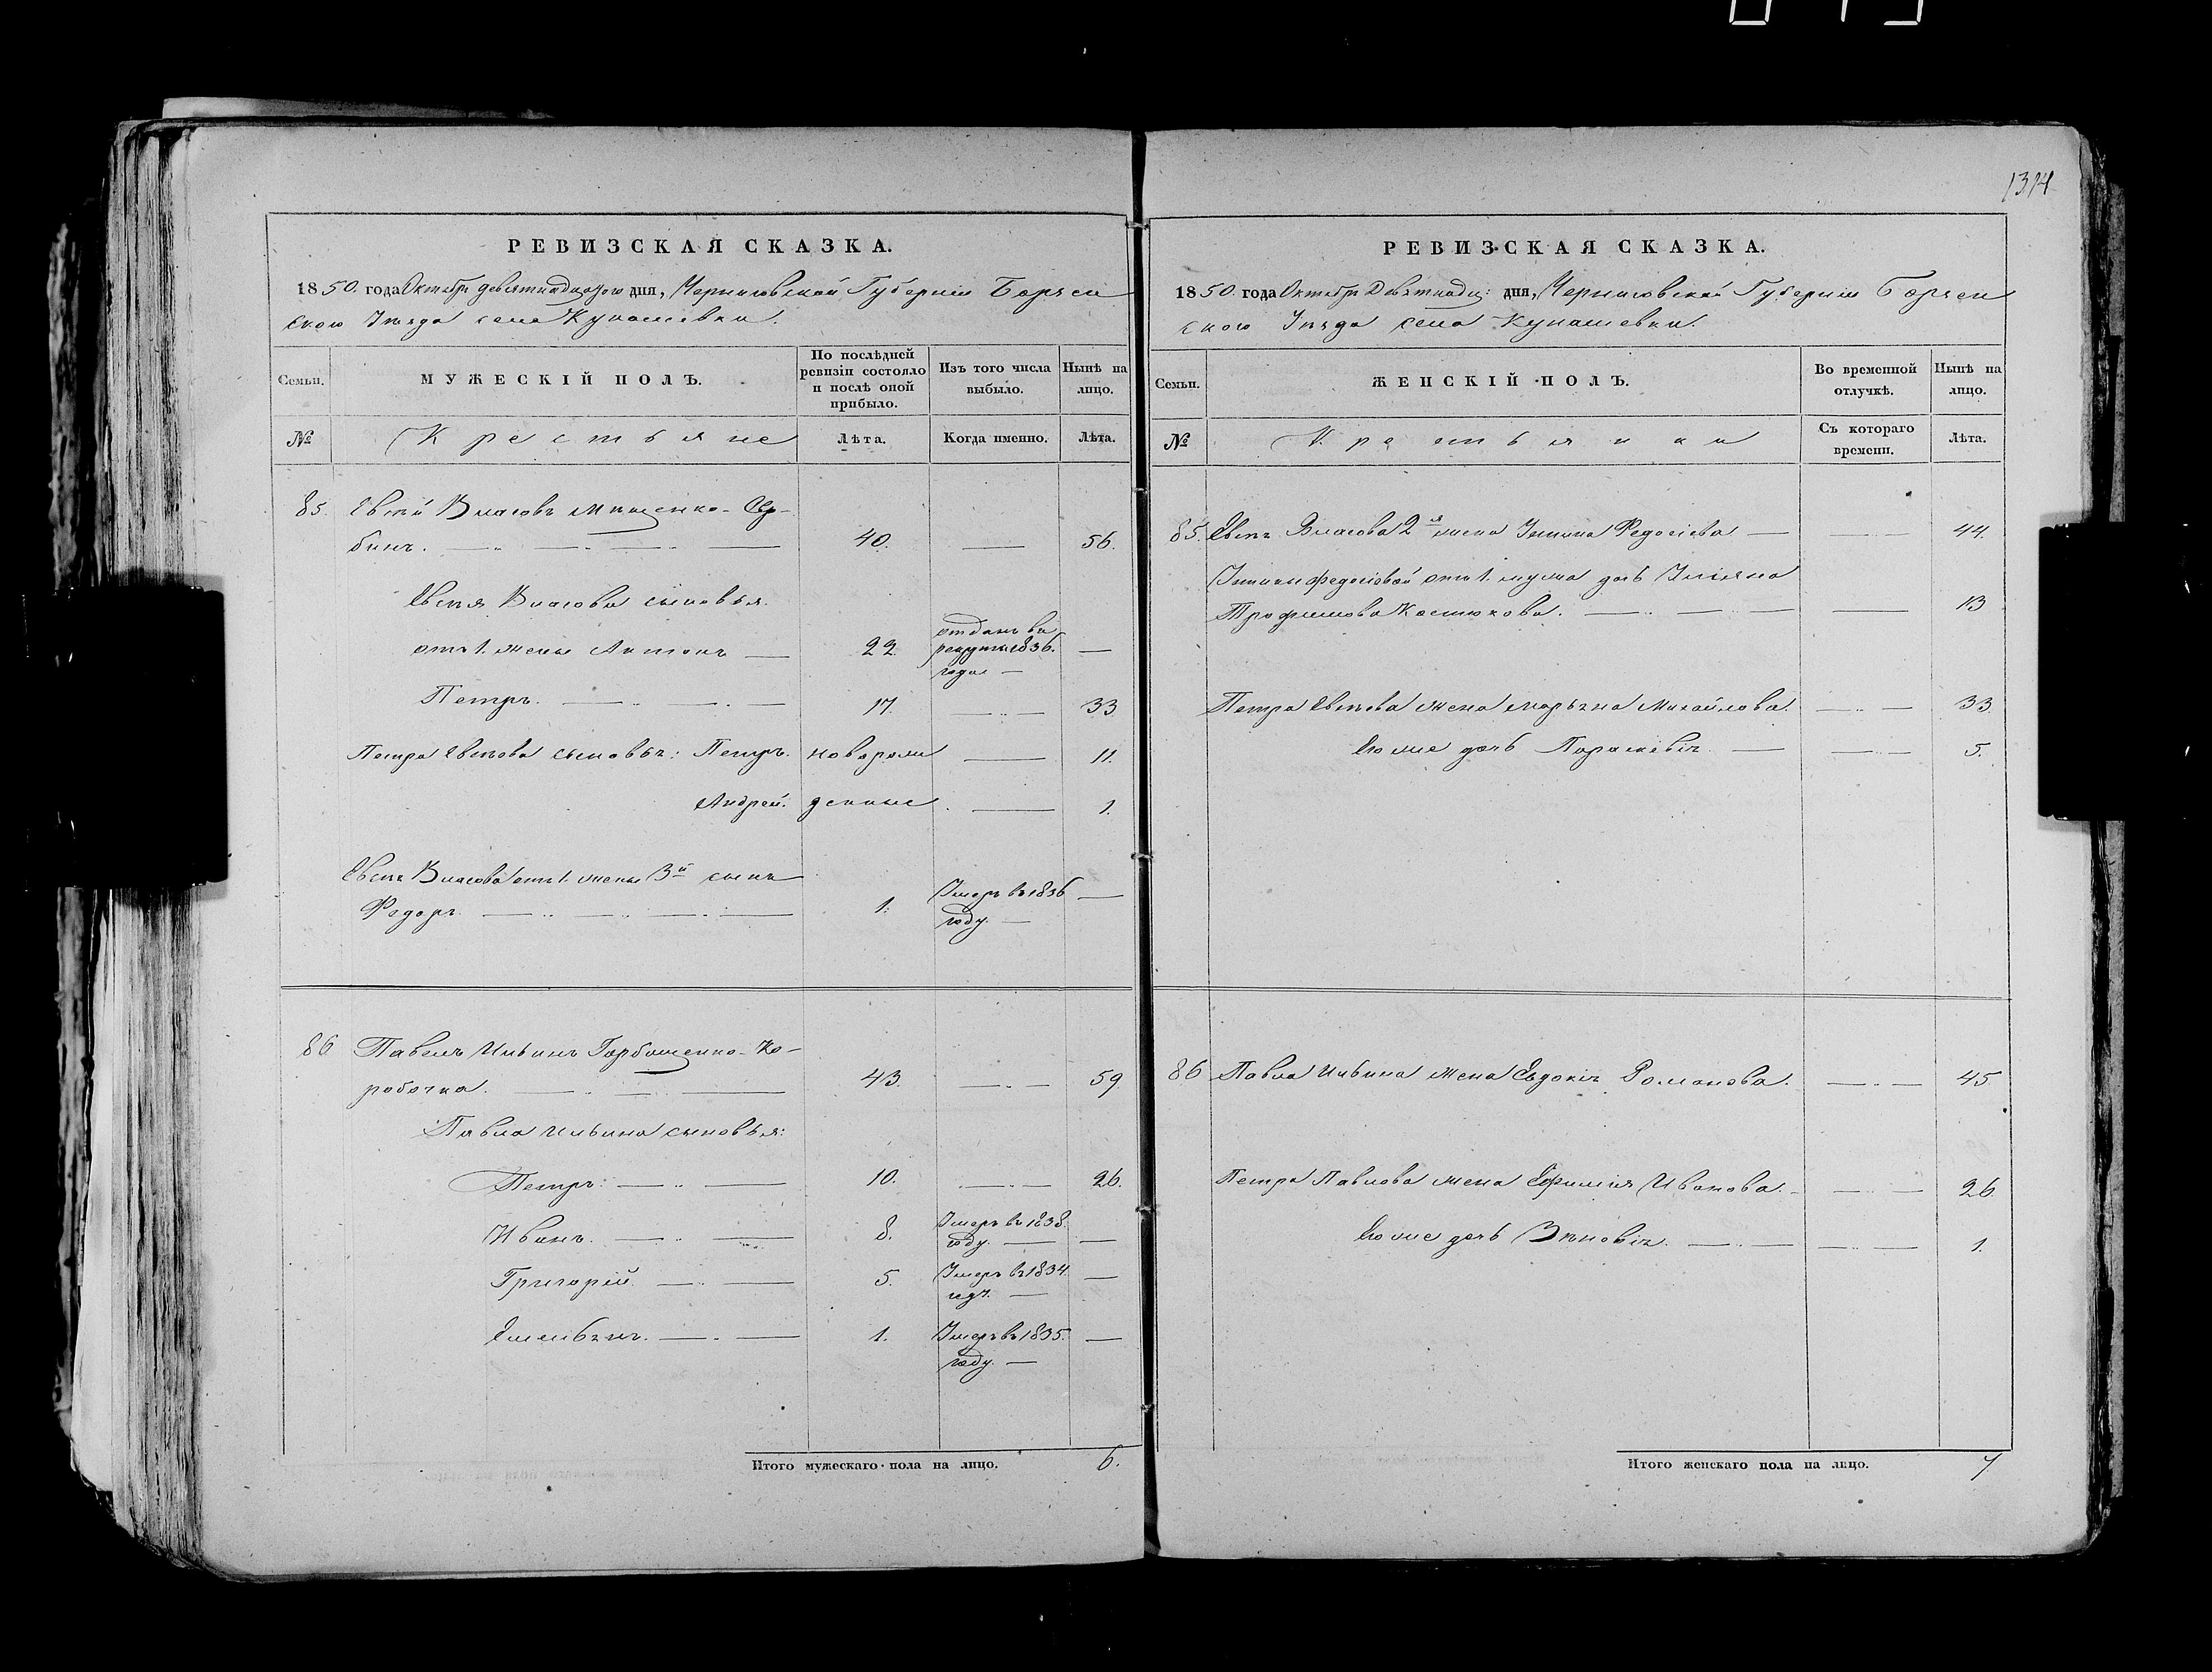 1314
РЕВИЗСКАЯ СКАЗКА.
1850. года Октября девятнадцатого дня, Черниговской Губернии Борзен
ского Уезда села Кунашевки.
Семьи.
МУЖЕСКІЙ ПОЛЪ.
По послѣдней ревизіи состояло и послѣ оной прибыло.
Изъ того числа выбыло.
Нынѣ на лицо.
№
Крестьяне
Лѣта.
Когда именно.
Лѣта.
85. Евтѣй Власовъ Мищенко-
бинъ. 40. 56.
Евтѣя Власова сыновья:
отъ 1. жены Антонъ 22. отданъ въ рекруты 1836. года
Петръ. 17. 33
Петра Евтѣева сыновья: Петръ. новорож 11.
Андрей. денные 1.
Евтѣя Власова отъ 1. жены 3й сынъ
Федоръ 1. Умеръ въ 1836 году.
86 Павелъ Ильинъ Горбащенко-Ко-
робочка. 43. 59.
Павла Ильина сыновья:
Петръ: 10. 26.
Иванъ. 8. Умеръ въ 1838. году.
Григорій. 5. Умеръ въ 1834.
Емельянъ. 1. Умеръ въ 1835. году.
Итого мужескаго пола на лицо. 6.
РЕВИЗСКАЯ СКАЗКА.
1850. года Октября Девятнадц: дня, Черниговской Губернии Борзен
ского Уезда села Кунашевки.
Семьи.
ЖЕНСКІЙ ПОЛЪ.
Во временной отлучкѣ.
Нынѣ на лицо.
№
Крестьянки
Съ котораго времени.
Лѣта.
85. Евтѣя Власова 2я жена Ульяна Федосіева 44.
Ульяны Федосіевой отъ 1. мужа дочь Ульяна
Трофимова Костюкова. 13
Петра Евтѣева жена Марьяна Михайлова. 33.
Ею же дочь Параскевія 5.
86 Павла Ильина жена Евдокія Романова. 45
Петра Павлова жена Ефимия Иванова. 26
Ею же дочь Зѣновія. 1.
Итого женскаго пола на лицо. 7